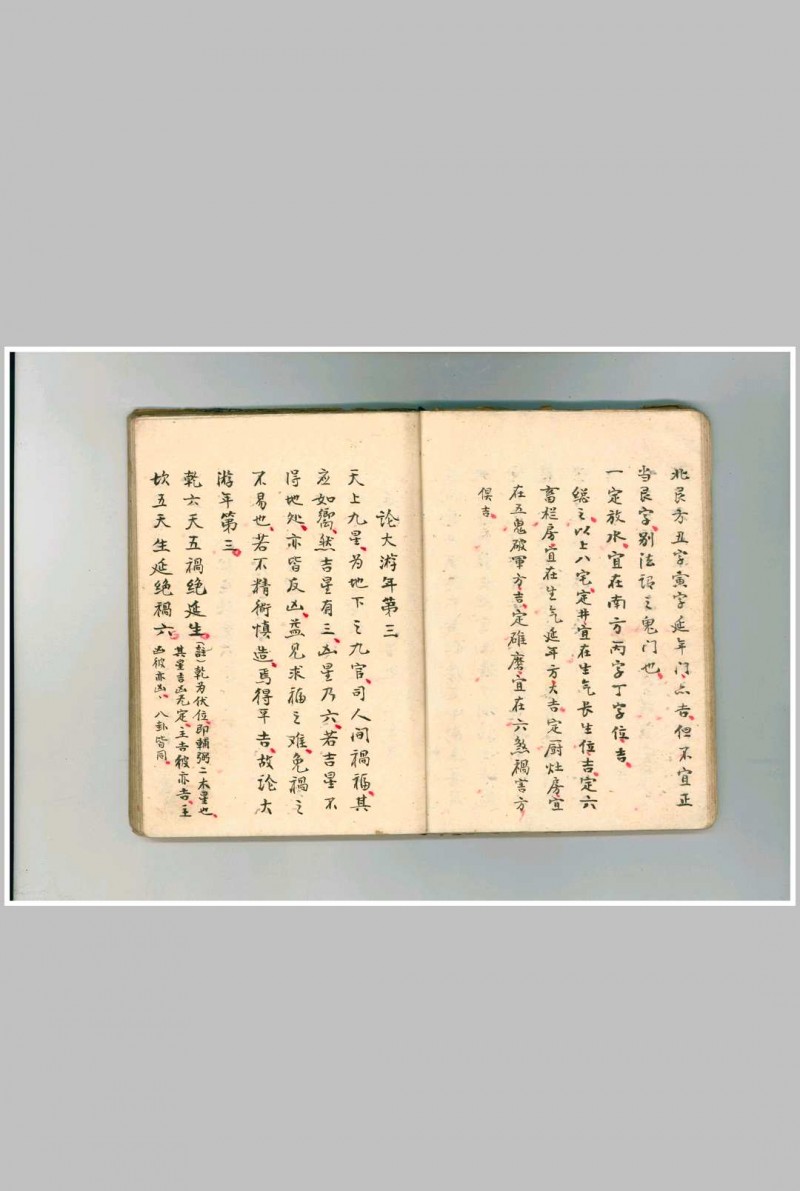 北艮方丑字寅字延年门上吉，但不宜正
当艮字，别法谓之鬼门也。
一定放水，宜在南方丙字丁字位吉。
总之以上八宅，定井宜在生气长生位吉，定六
畜栏房宜在生气延年方大吉，定厨灶房宜
在五鬼破军方吉，定碓磨宜在六煞祸害方
俱吉。
论大游年第三
天上九星，为地下之九宫，司人间祸福，其
应如响，然吉星有三，凶星乃六，若吉星不
得地处，亦皆反凶，益见求福之难，免祸之
不易也，若不精術慎造，焉得平吉，故论大
游年第三。
乾六天五祸绝延生，（註）乾为伏位，即輔弼二木星也，
其星吉凶无定，主吉彼亦吉，主
坎五天生延绝祸六。凶彼亦凶，八卦皆同。